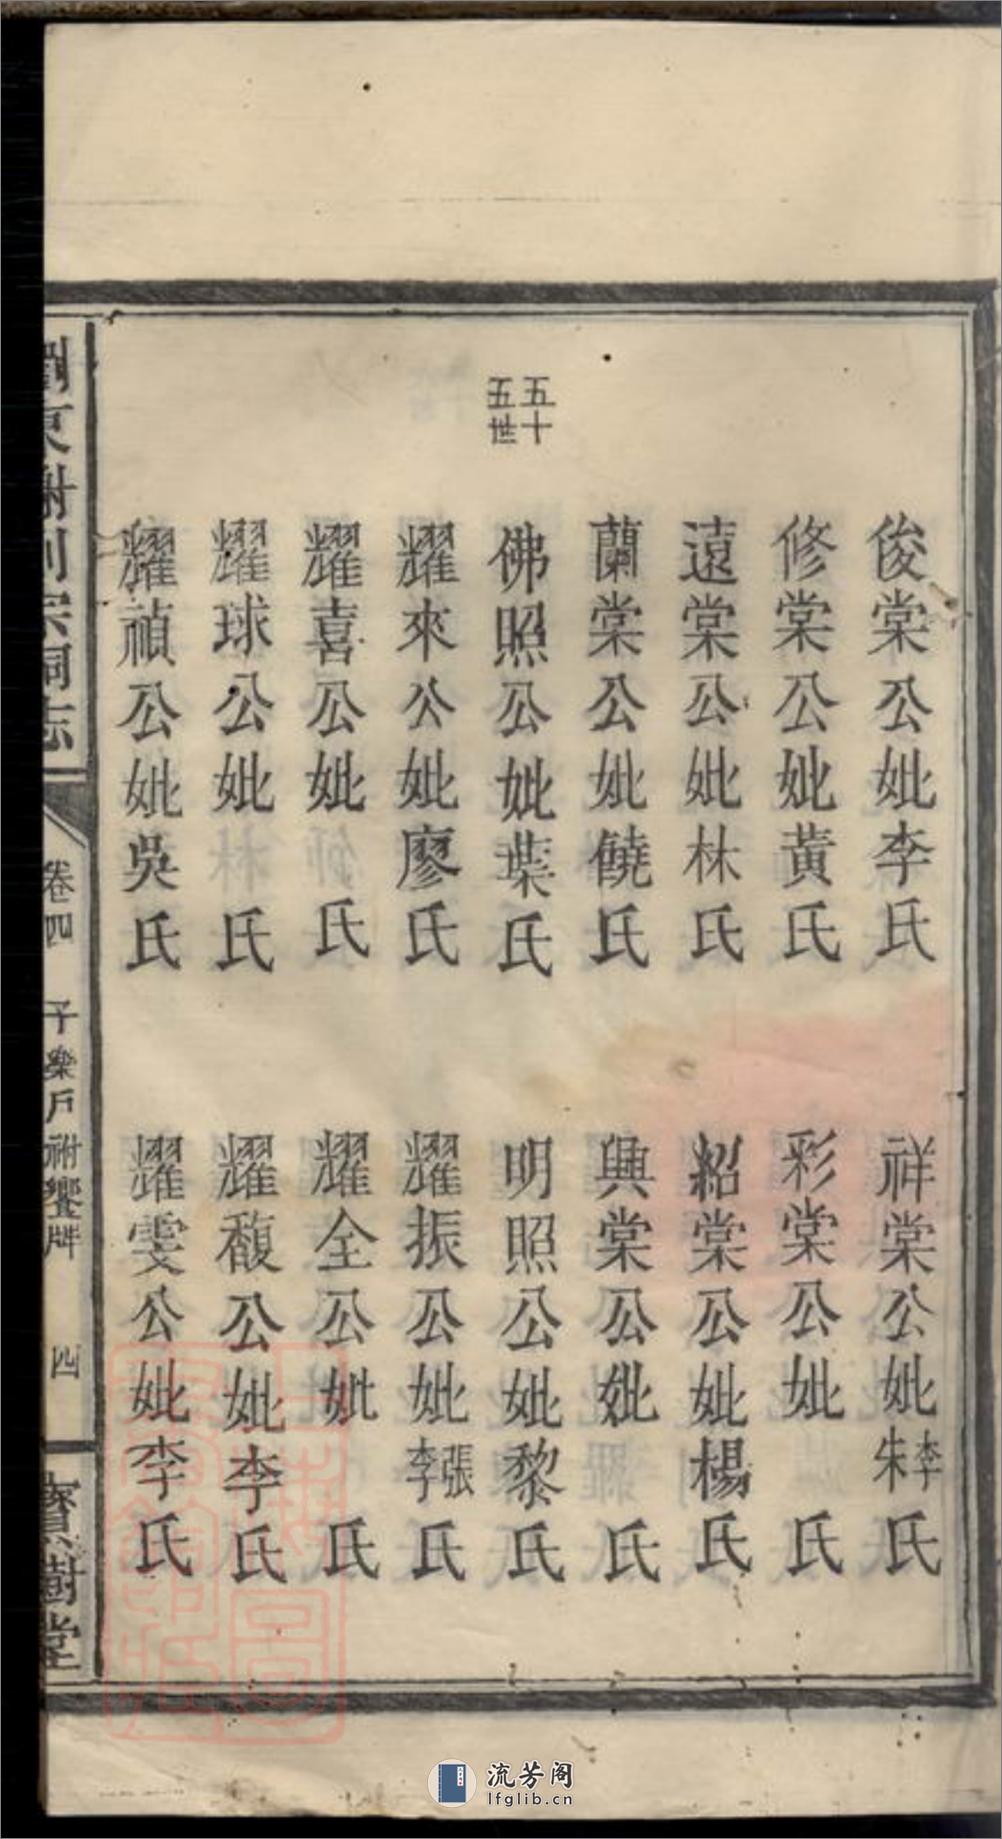 俊棠公妣李氏
祥棠公妣李朱氏
修棠公妣黃氏
彩棠公妣 氏
遠棠公妣林氏
紹棠公妣楊氏
蘭棠公妣饒氏
興棠公妣 氏
五十五世
佛照公妣葉氏
明照公妣黎氏
耀來公妣廖氏
耀振公妣張李氏
耀喜公妣 氏
耀全公妣 氏
耀球公妣 氏
耀馥公妣李氏
耀禎公妣吳氏
耀雯公妣李氏
瀏東謝刘宗祠志
卷四 子樂戶祔饗牌 四
寶樹堂
流芳阁
lfglib.cn